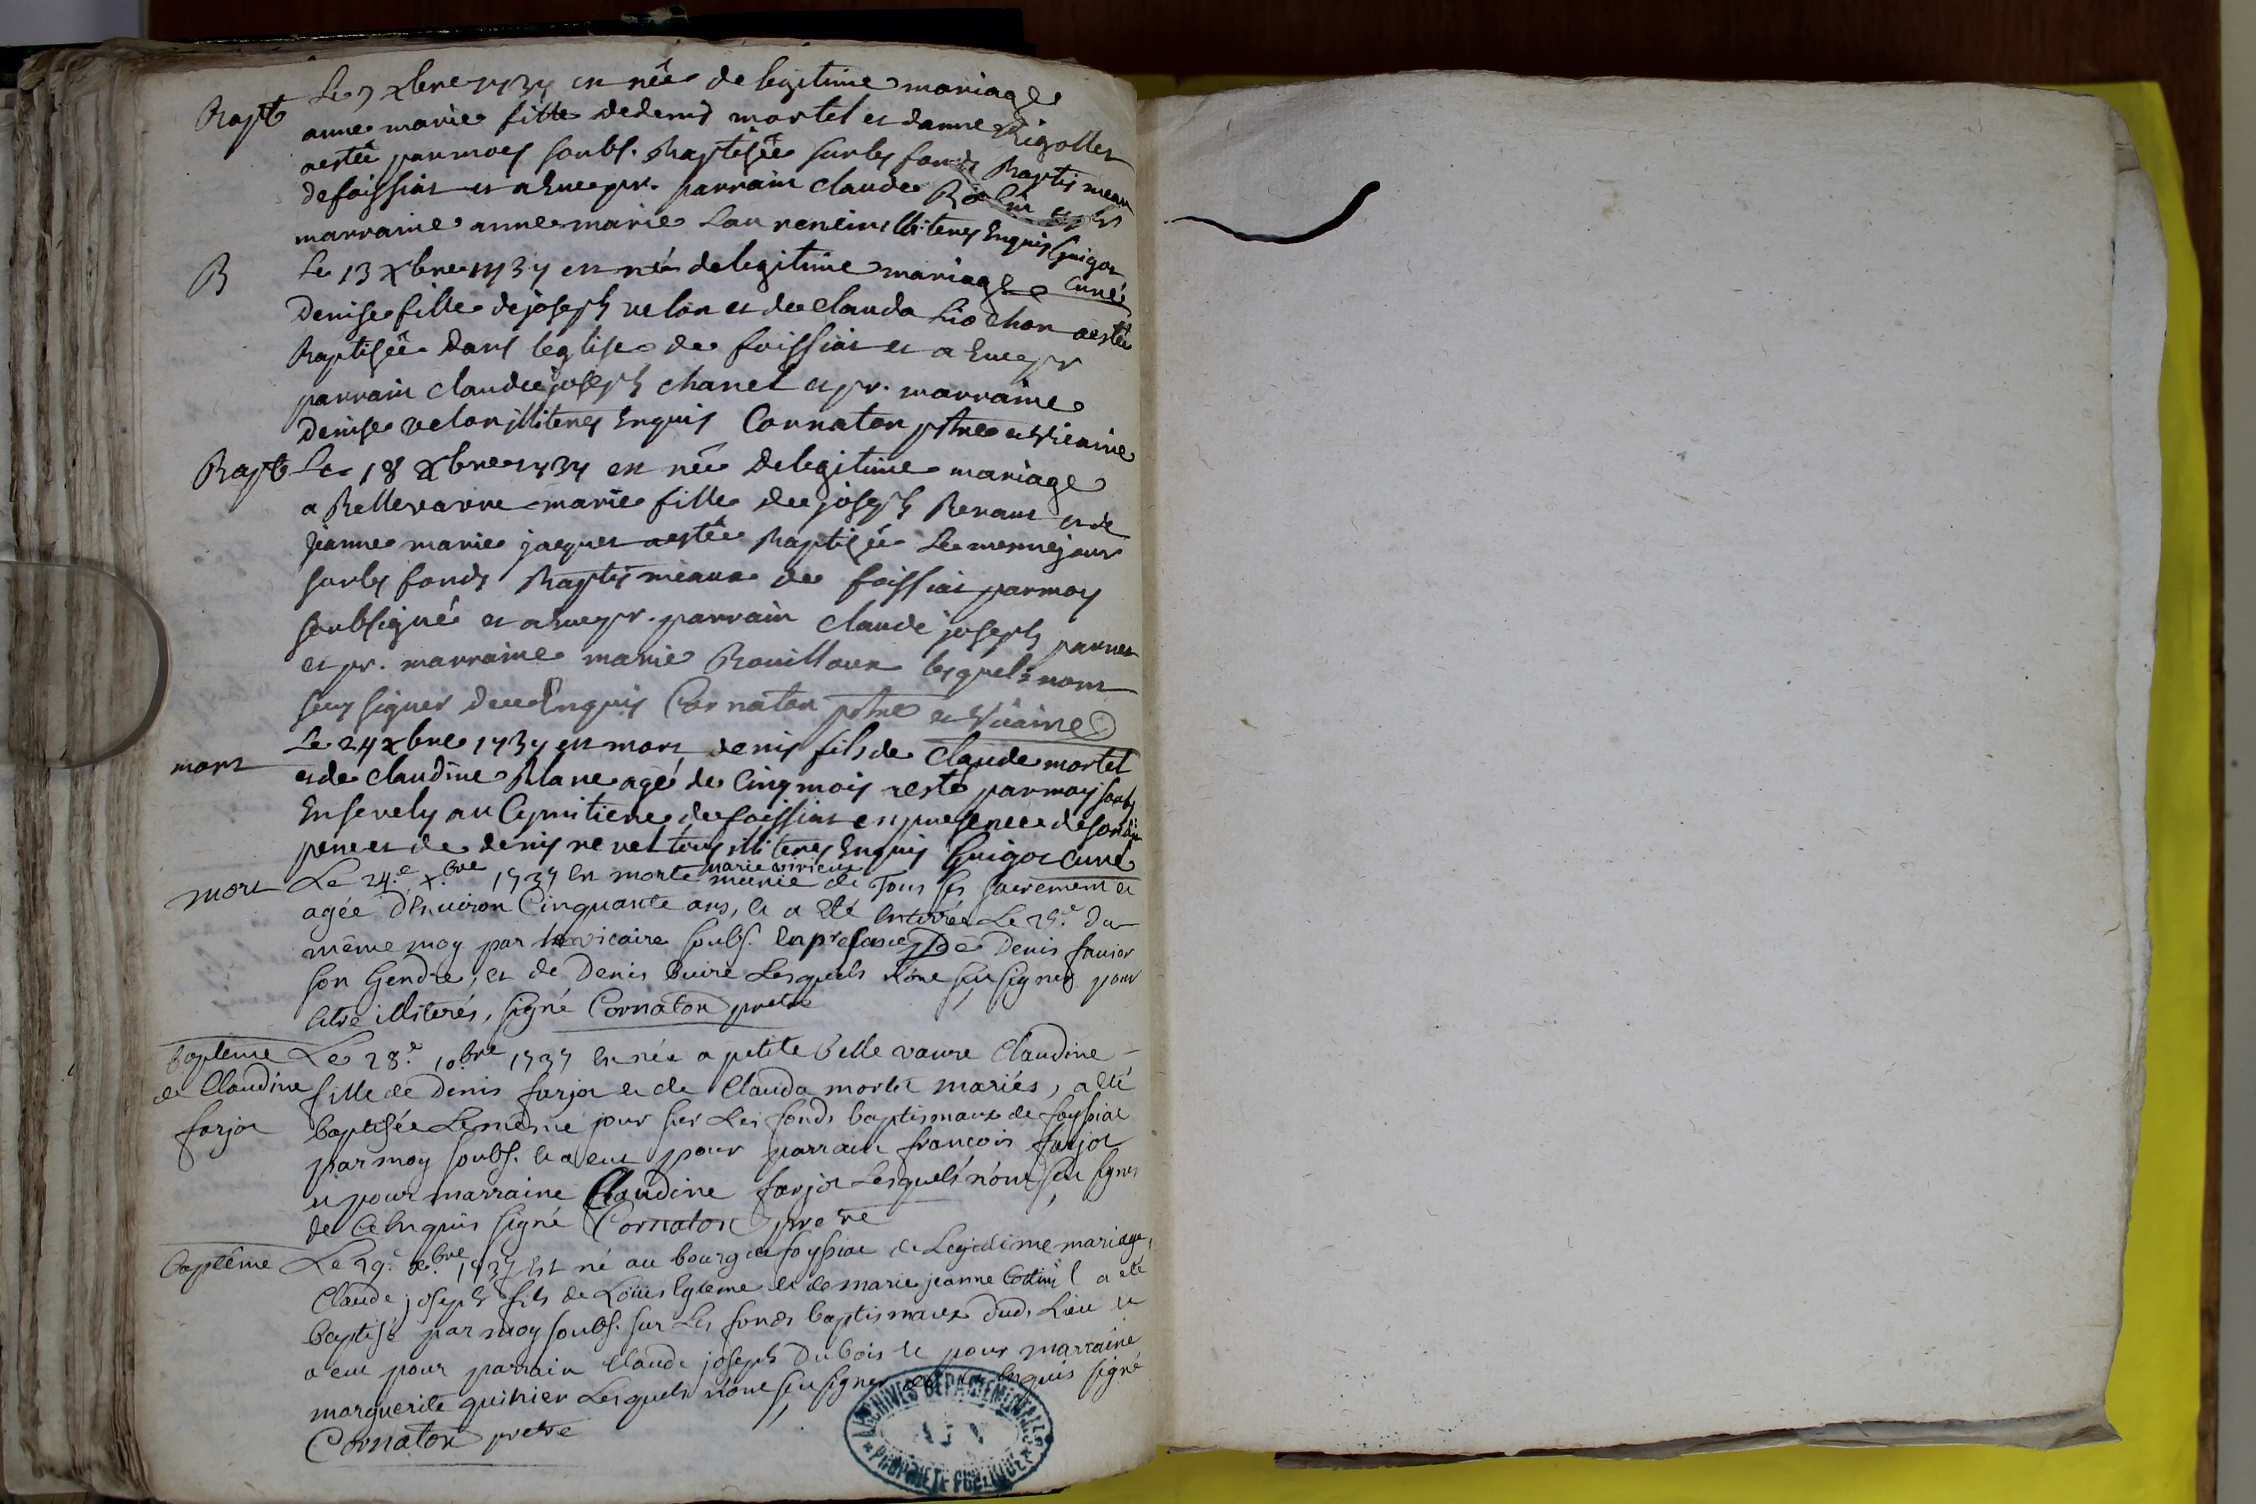 Bapt Le 7 xbre 1737 est née de legitime mariage
anne marie fille de denis mortel et danne Rigollet
aesté par moy soubs. Baptisée sur les fonds Baptismeaux
de foissiat et a Eue pr. parrain claude
marraine anne marie Laurencin illiteres Enquis Guigot
Curé
B Le 13 xbre 1737 est née de legitime mariage
Denise fille de joseph velon et de clauda Liochon aesté
Baptisée dans leglise de foissiat et a Eue pr
parrain claude joseph chanel et pr. marraine
denise velon illiteres Enquis Cornaton ptre et vicaire
Bapt Le 18 xbre 1737 est née de legitime mariage
a Bellevavre marie fille de joseph Renaut et de
jeanne marie jaquet aestée Baptisée Le meme jour
sur les fonds Baptismeaux de foissiat par moy
soubsigné et a Eue pr. parrain claude joseph
et pr. marraine marie Rouilloux lesquels nont
sceu signer de ce Enquis Cornaton ptre et vicaire
mort Le 24 xbre 1737 est mort denis fils de claude mortel
et de claudine Blanc agé de Cinq mois aesté par moy soubs
Ensevely au Cymitiere de foissiat en presence de sondit
pere et de denis revel tous illiteres Enquis Guigot Curé
marie
mort Le 24.e x.bre 1737 est morte munie de Tous ses sacrement et
agée D'Environ Cinquante ans, et a Eté Enterrée Le 25.e du
même moy par le vicaire soubs. En presence De Denis favier
son Gendre, et de Denis buire Lesquels n'ont sçu signer pour
Etre illiterés, signé Cornaton pretre
baptême Le 28.e 10.bre 1737 est née a petite belle vavre Claudine
de Claudine fille de Denis farjot et de Clauda mortel mariés, a été
farjot baptisée Le même jour sur Les fonds baptismaux de foyssiat
par moy soubs. et a eut pour parrain françois farjot
et pour marraine Claudine farjot Lesquels n'ont sçu signer
de ce Enquis signé Cornaton pretre
baptême Le 29.e x.bre 1737 Est né au bourg de foyssiat de Legitime mariage,
Claude joseph fils de Loüis Ayleme et de marie jeanne il a été
baptisé par moy soubs. sur Les fonds baptismaux dud. Lieu et
a eut pour parrain Claude joseph Dubois et pour marraine
marguerite quinier Lesquels n'ont sçu signer de ce Enquis signé
Cornaton pretre
ARCHIVES DÉPARTEMENTALES
AIN
PROPRIÉTÉ PUBLIQUE